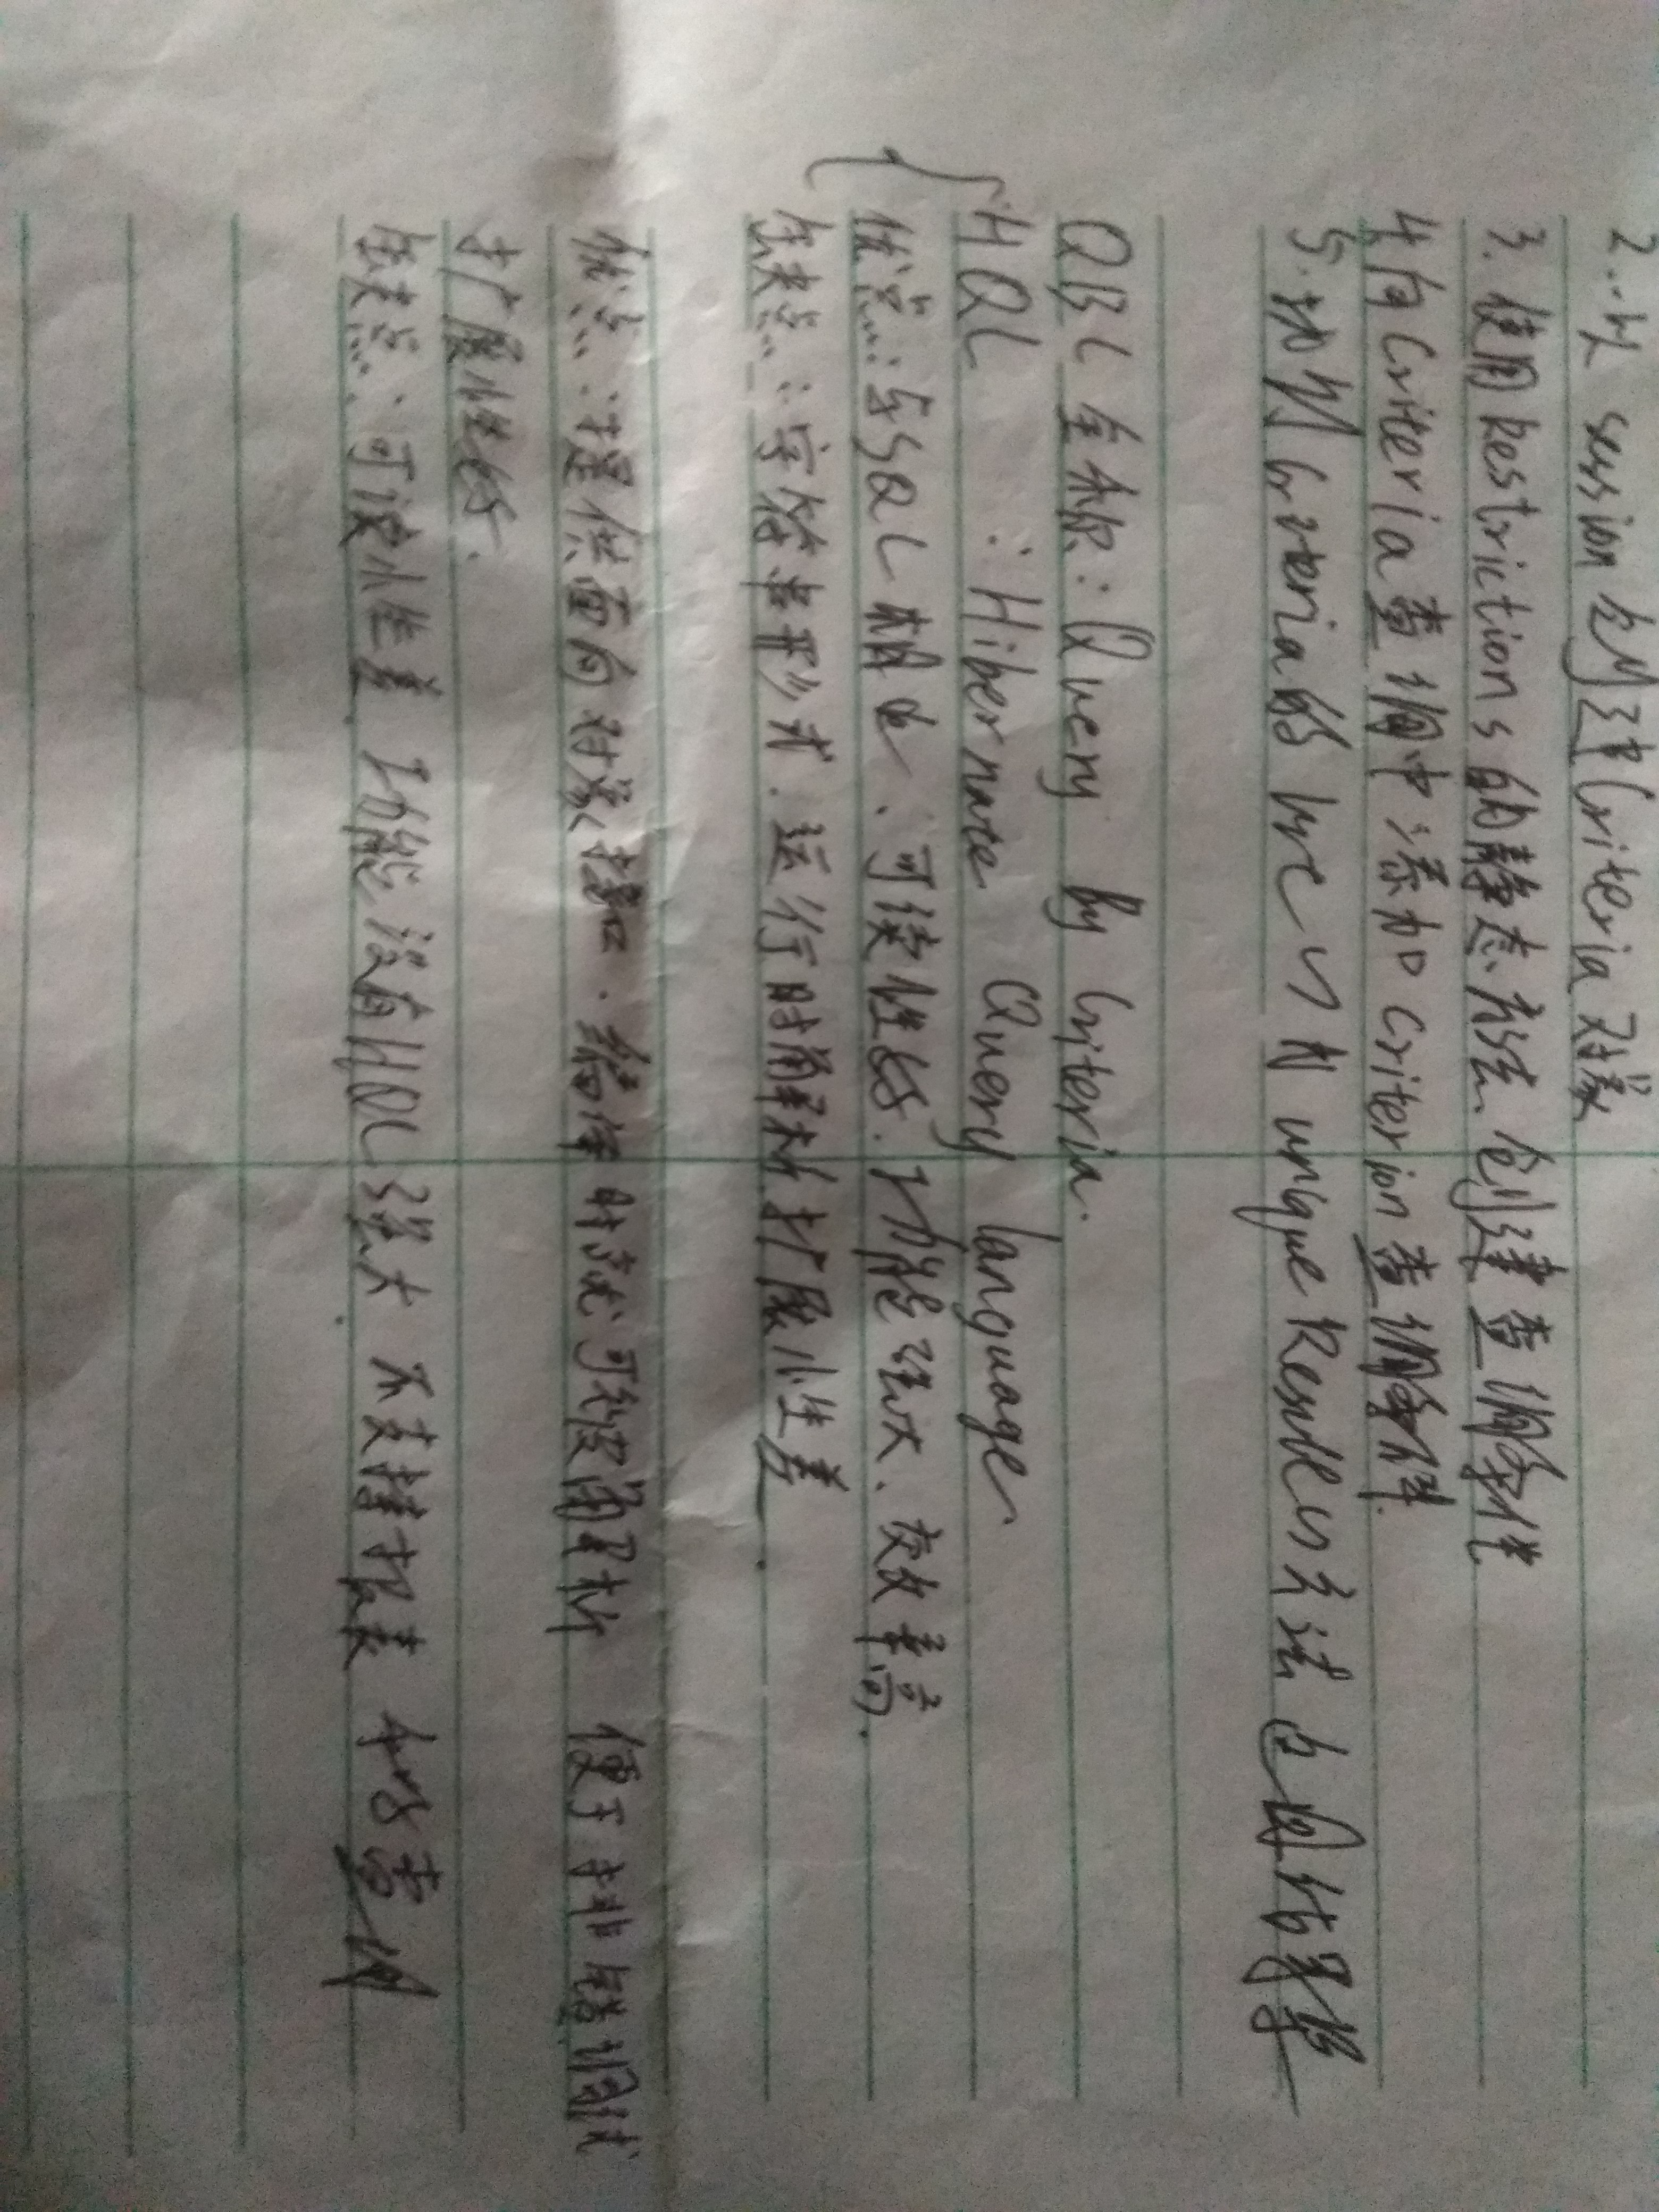 2. 以 session 创建 Criteria 对象
3. 使用 Restrictions 的静态方法 创建查询条件
4. 向 Criteria 查询中添加 Criterion 查询条件.
5. 执行 Criteria的 方法 返回结果
QBC 全称: Query By Criteria.
HQL : Hibernate Query language.
优点: 与SQL相近、可读性好. 功能强大、效率高.
缺点: 字符串形式. 运行时解析 扩展性差.
优点: 提供面向对象接口. 编译时 可被解析 便于排错调试
扩展性好.
缺点: 可读性差 功能没有HQL强大 不支持报表 查询